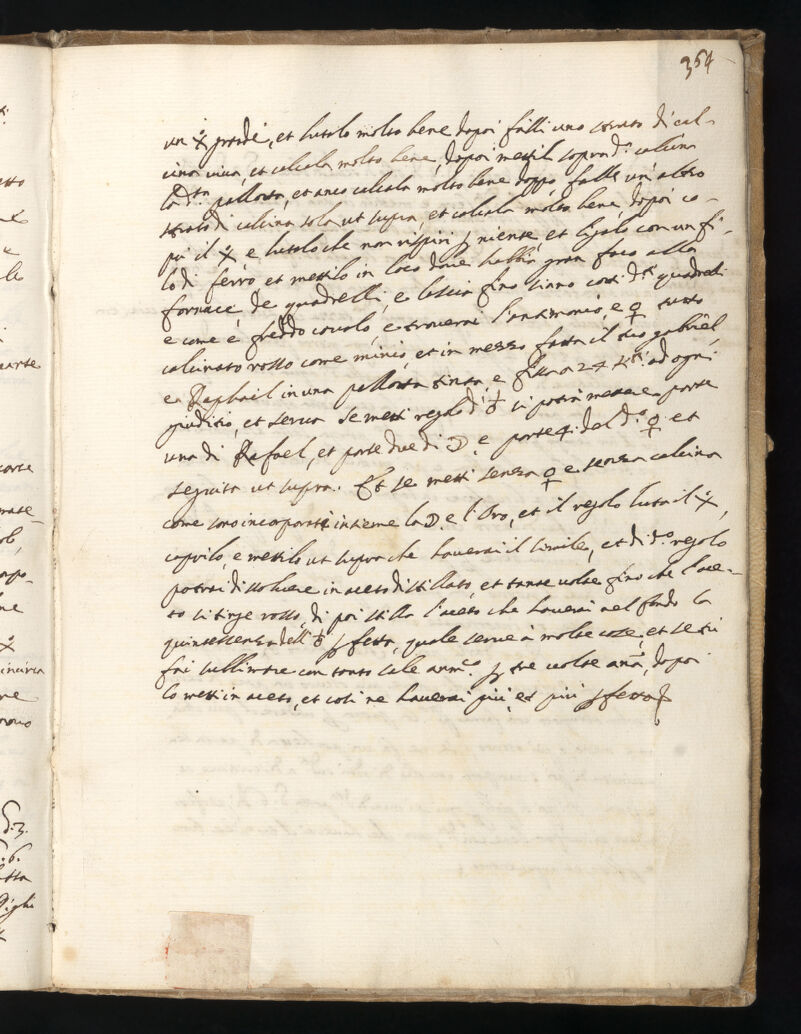 354
un grande, et lutalo molto bene dopoi falli uno strato di cal-
cina viva, et calcala molto bene, dopoi metti sopra d.ª calcina
la d.ª pallotta, et anco calcala molto bene doppo falli un altro
strato di calcina sola ut supra, et calcala molto bene, dopoi co-
pri il e lutalo che non respiri niente, et ligalo con un fi-
lo di ferro et mettilo in loco dove habbia gran foco alla
fornace de quadrelli, e lascia fino siano cotti d.ⁱ quadrelli
e come è freddo cavalo, e troverai l'antimonio, e ♀ tutto
calcinato rosso come minio, et in mezzo fatta il suo gabriel,
e Raphael in una pallotta tinta, e fina a 24 ad ogni
giuditio, et serva se metti regolo di ♁ si potrà mettere parte
una di Rafael, et parte due di ☽ e parte 4. del d.º ♀ et
seguita ut supra. Et se metti senza ♀ e senza calcina
come sono incorporati insieme la ☽ e l'oro, et il regolo luta il
coprilo, e mettilo ut supra che haverai il simile, et di d.º regolo
potrai dissolvere in aceto distillato, et tante volte fino che l'ace-
to si tinge rosso, di poi stilla l'aceto che haverai nel fondo la
quintessenza dell' ♁ perfetta, quale serve à molte cose, et se tu
fai sullimare con tanto sale arm.º per tre volte anā, dopoi
lo metti in aceto, et così ne haverai più, et più perfetta